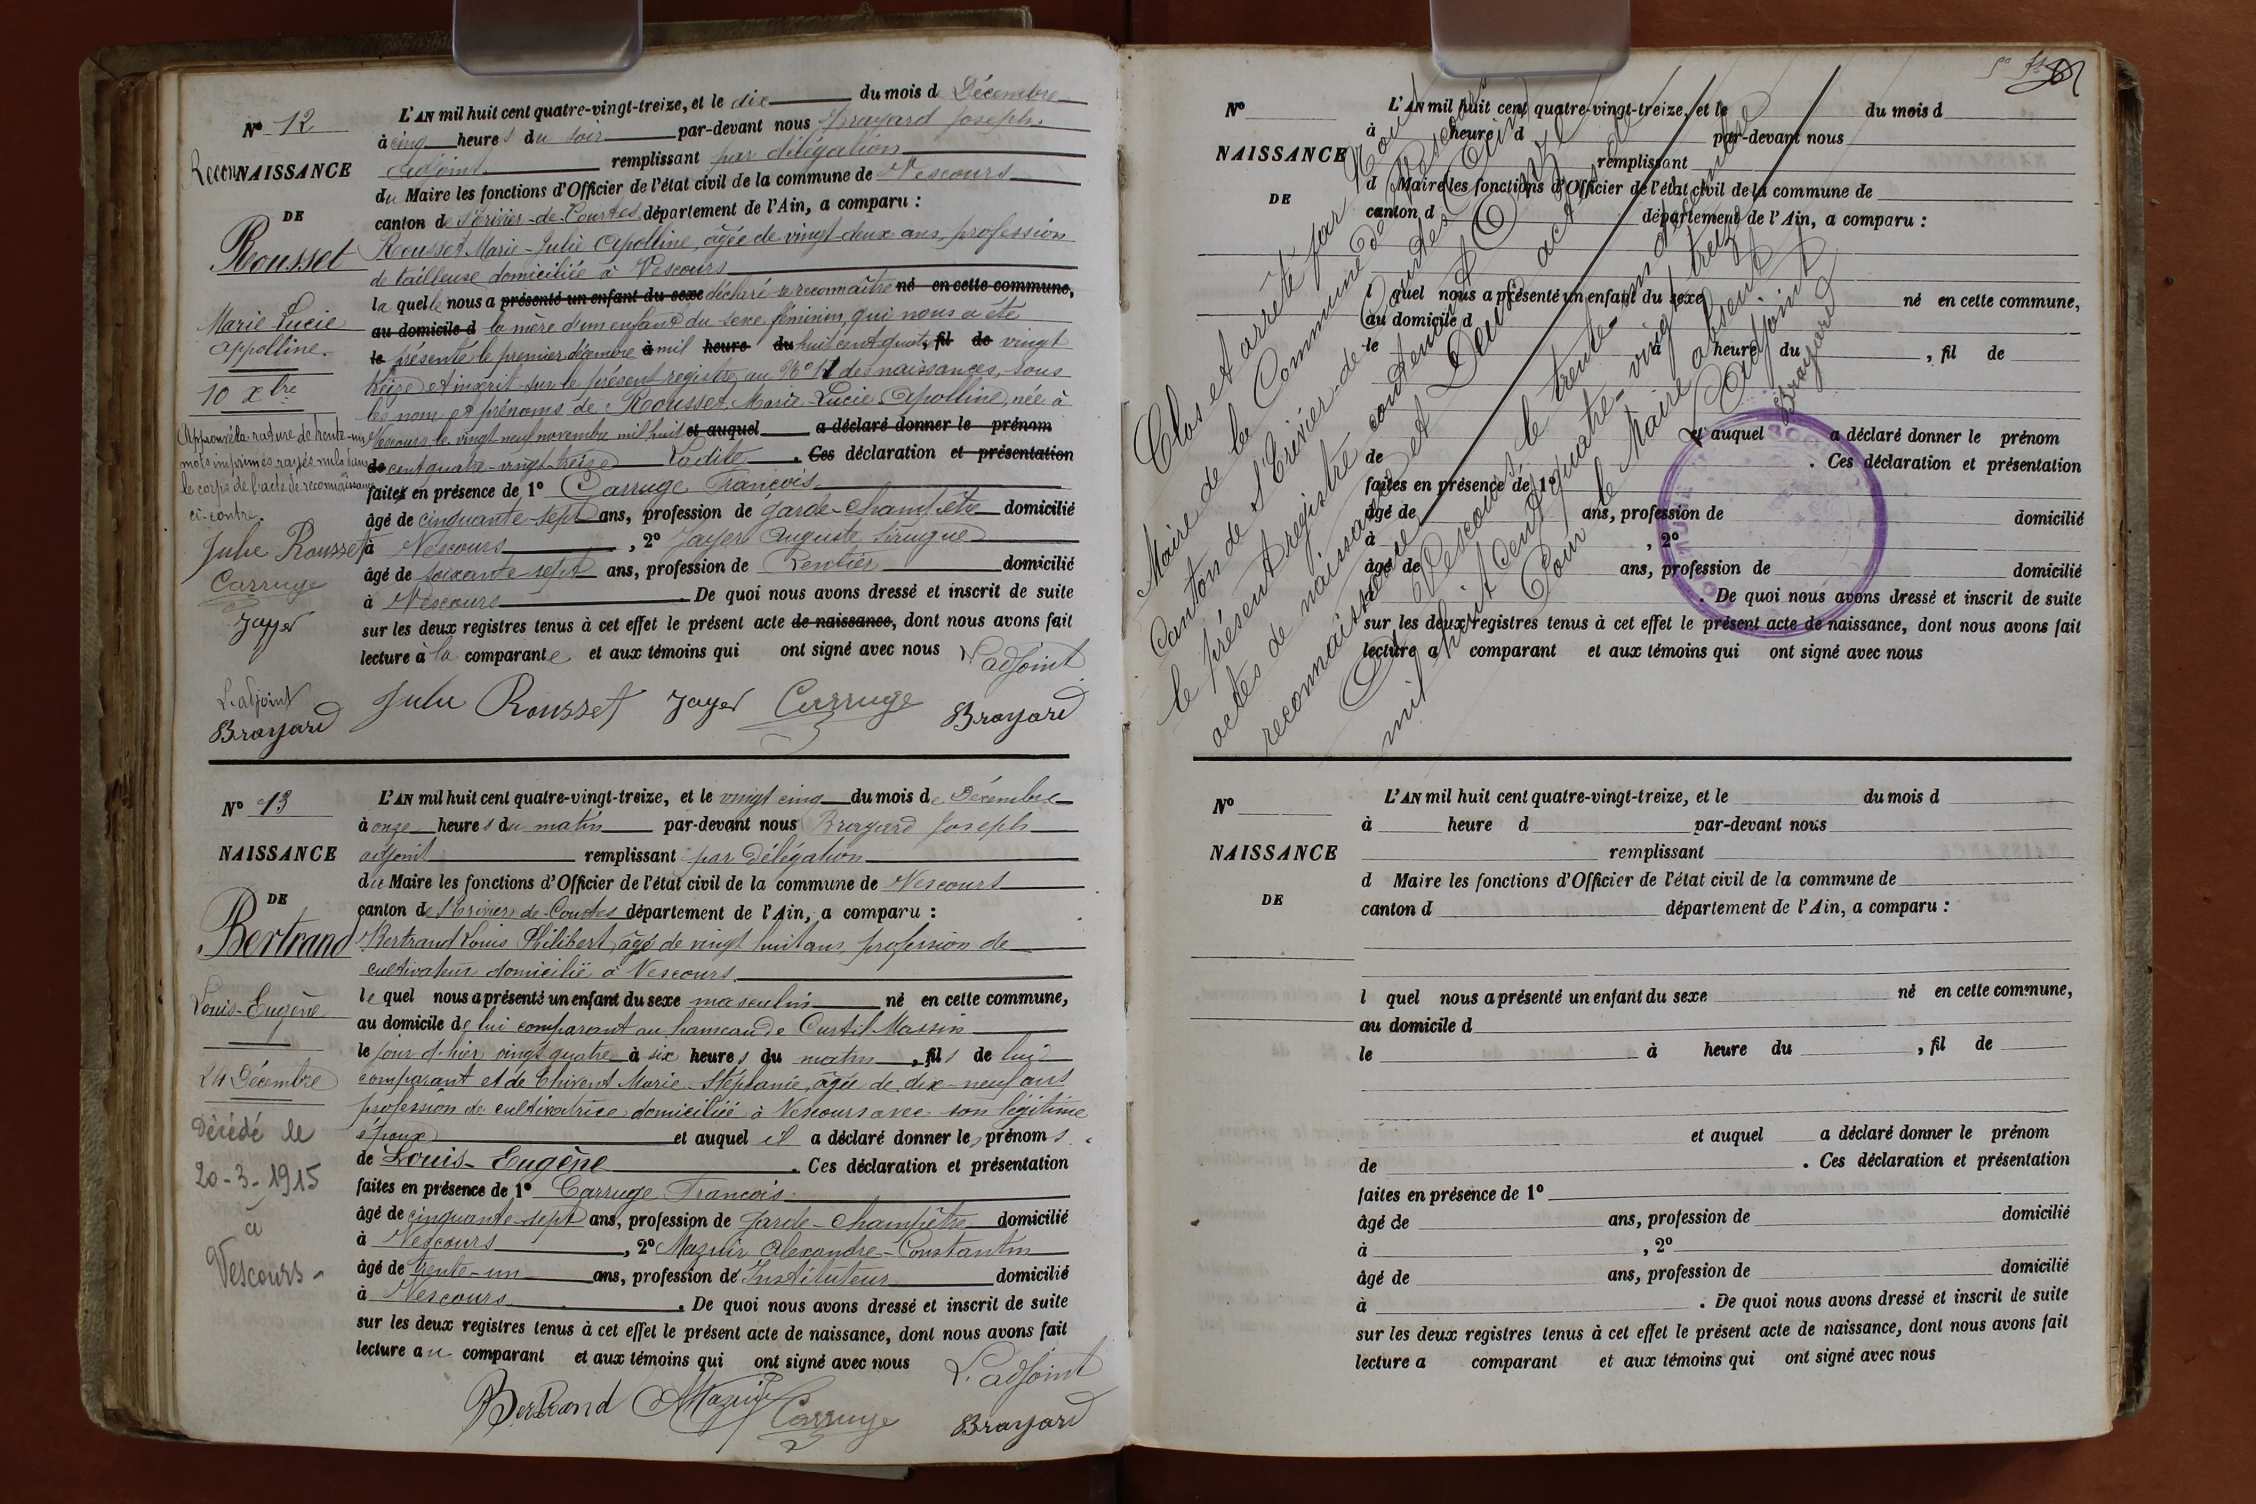 N° 12
ReconNAISSANCE
DE
Rousset
Marie Lucie
Appolline.
10 Xbre
Approuvé la rature de trente-un
mots imprimés rayés nuls dans
le corps de l'acte de reconnaissance
ci-contre.
Julie Rousset
Carruge
Jayer
L'adjoint
Brayard
L'AN mil huit cent quatre-vingt-treize, et le dix du mois d Décembre
à cinq heures du soir par-devant nous Brayard Joseph
adjoint remplissant par délégation
du Maire les fonctions d'Officier de l'état civil de la commune de Vescours
canton de St Trivier-de-Courtes, département de l'Ain, a comparu :
Rousset Marie-Julie Apolline, âgée de vingt-deux ans, profession
de tailleuse domiciliée à Vescours
la quelle nous a présenté un enfant du sexe déclaré se reconnaître né en cette commune,
au domicile d la mère d'un enfant du sexe féminin, qui nous a été
le présenté le premier décembre à mil heure du huit cent quatre, fil de vingt
treize et inscrit sur le présent registre au N° 11 des naissances, sous
les nom et prénoms de Rousset, Marie-Lucie Apolline, née à
Vescours le vingt neuf novembre mil huit et auquel a déclaré donner le prénom
de cent quatre-vingt-treize Ladite . Ces déclaration et présentation
faites en présence de 1° Carruge François
âgé de cinquante-sept ans, profession de garde-champêtre domicilié
à Vescours, 2° Jayer Auguste
âgé de soixante-sept ans, profession de Rentier domicilié
à Vescours. De quoi nous avons dressé et inscrit de suite
sur les deux registres tenus à cet effet le présent acte de naissance, dont nous avons fait
lecture à la comparante et aux témoins qui ont signé avec nous L'adjoint
Julie Rousset Jayer Carruge Brayard
N° 13
NAISSANCE
DE
Bertrand
Louis-Eugène
24 Décembre
Décédé le
20-3-1915
à
Vescours
L'AN mil huit cent quatre-vingt-treize, et le vingt cinq du mois de Décembre
à onze heures du matin par-devant nous Brayard Joseph
adjoint remplissant par délégation
du Maire les fonctions d'Officier de l'état civil de la commune de Vescours
canton de St Trivier-de-Courtes département de l'Ain, a comparu :
Bertrand Louis Philibert, âgé de vingt huit ans, profession de
cultivateur domicilié à Vescours
le quel nous a présenté un enfant du sexe masculin né en cette commune,
au domicile de lui comparant au hameau de Curtil Massin
le jour d'hier vingt quatre à six heures du matin, fils de lui
comparant et de Thivent Marie-Stéphanie, âgée de dix-neuf ans
profession de cultivatrice domiciliée à Vescours avec son légitime
époux et auquel il a déclaré donner les prénoms
de Louis-Eugène. Ces déclaration et présentation
faites en présence de 1° Carruge François
âgé de cinquante-sept ans, profession de garde-champêtre domicilié
à Vescours, 2° Mazuir Alexandre-Constantin
âgé de trente-un ans, profession de Instituteur domicilié
à Vescours. De quoi nous avons dressé et inscrit de suite
sur les deux registres tenus à cet effet le présent acte de naissance, dont nous avons fait
lecture au comparant et aux témoins qui ont signé avec nous L'adjoint
Bertrand AMazuir Carruge Brayard
N°
NAISSANCE
DE
L'AN mil huit cent quatre-vingt-treize, et le du mois d
à heure d par-devant nous
remplissant
d Maire les fonctions d'Officier de l'état civil de la commune de
canton d département de l'Ain, a comparu :
l quel nous a présenté un enfant du sexe né en cette commune,
au domicile d
le à heure du , fil de
et auquel a déclaré donner le prénom
de . Ces déclaration et présentation
faites en présence de 1°
âgé de ans, profession de domicilié
à , 2°
âgé de ans, profession de domicilié
à . De quoi nous avons dressé et inscrit de suite
sur les deux registres tenus à cet effet le présent acte de naissance, dont nous avons fait
lecture a comparant et aux témoins qui ont signé avec nous
Clos et arrêté par Nous
Maire de la Commune de Vescours
Canton de St Trivier-de-Courtes (Ain)
le présent registre contenant Onze
actes de naissance et Deux actes de
reconnaissance
A Vescours, le trente-un décembre
mil huit cent quatre-vingt treize
Pour le Maire absent
L'adjoint
Brayard
N°
NAISSANCE
DE
L'AN mil huit cent quatre-vingt-treize, et le du mois d
à heure d par-devant nous
remplissant
d Maire les fonctions d'Officier de l'état civil de la commune de
canton d département de l'Ain, a comparu :
l quel nous a présenté un enfant du sexe né en cette commune,
au domicile d
le à heure du , fil de
et auquel a déclaré donner le prénom
de . Ces déclaration et présentation
faites en présence de 1°
âgé de ans, profession de domicilié
à , 2°
âgé de ans, profession de domicilié
à . De quoi nous avons dressé et inscrit de suite
sur les deux registres tenus à cet effet le présent acte de naissance, dont nous avons fait
lecture a comparant et aux témoins qui ont signé avec nous